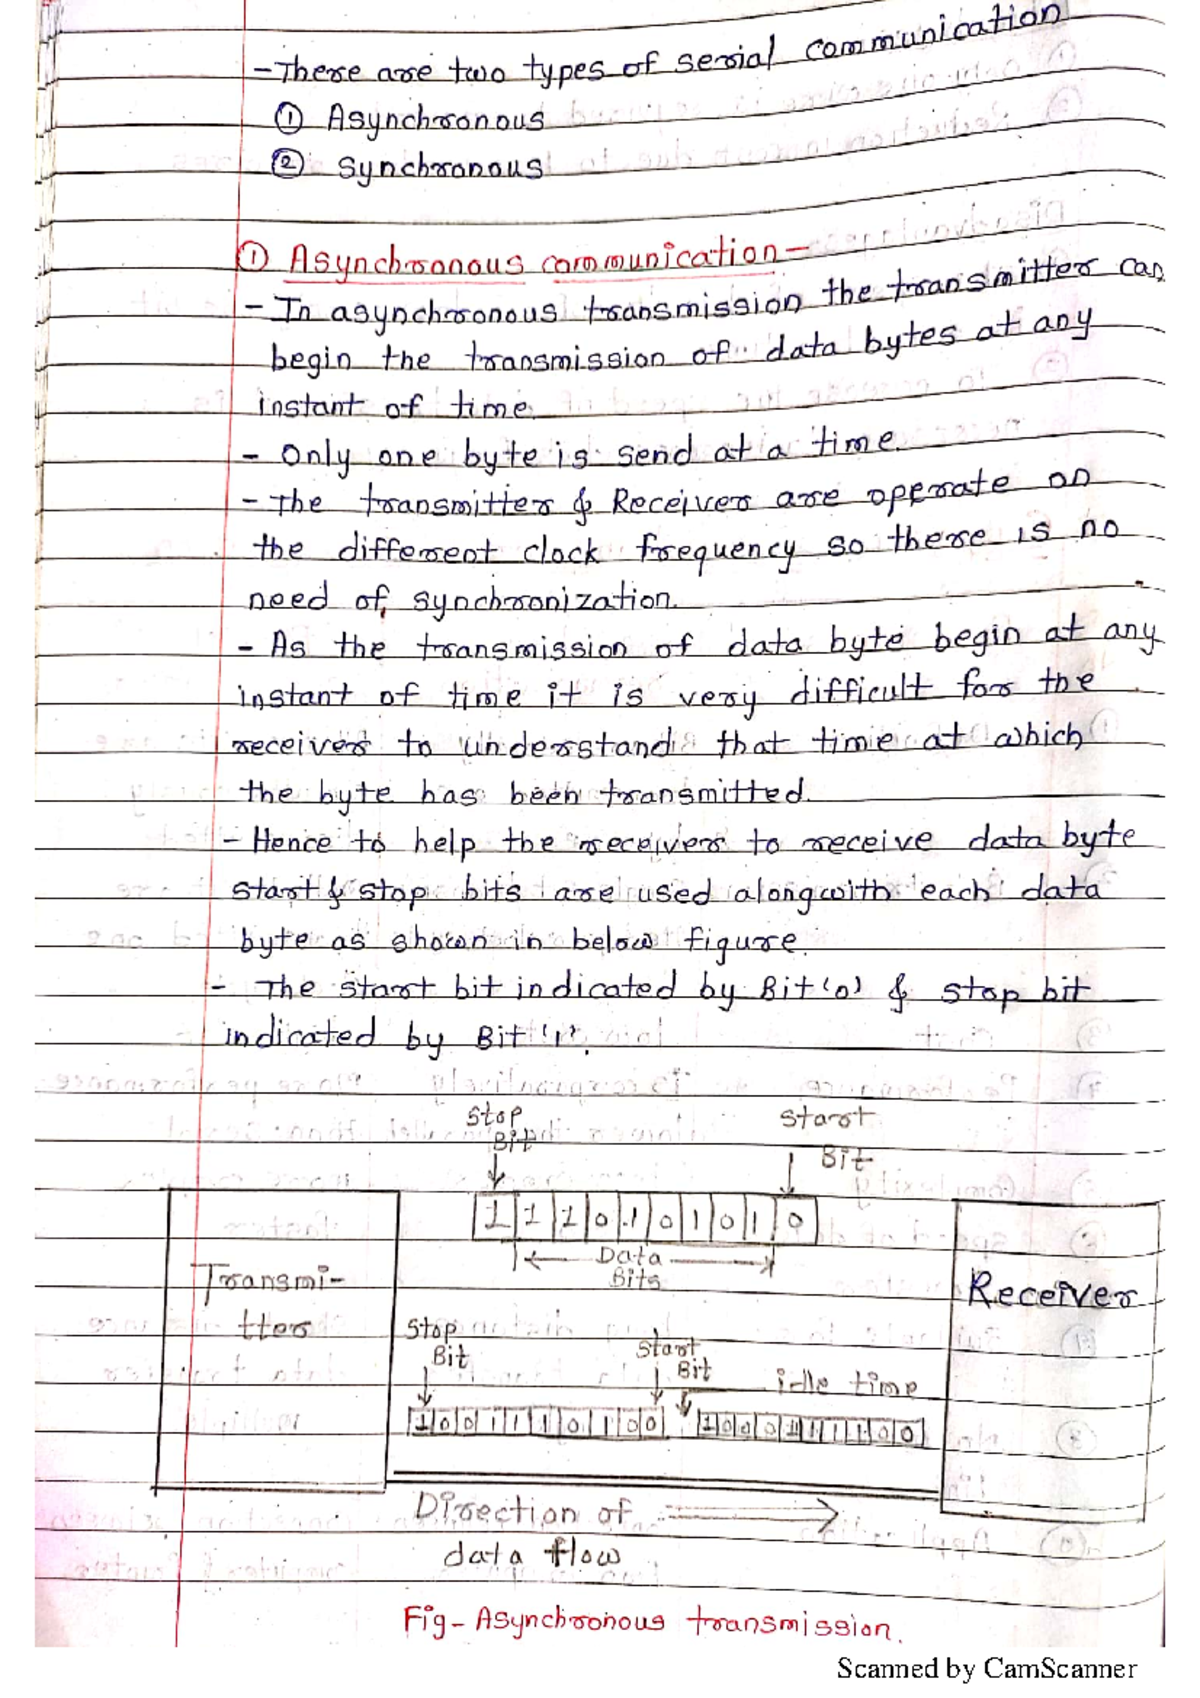 -There are two types of serial communication
① Asynchronous
② synchronous
① Asynchronous communication-
- In asynchronous transmission the transmitter can
begin the transmission of data bytes at any
instant of time.
- Only one byte is send at a time.
- The transmitter & Receiver are operate on
the different clock frequency so there is no
need of synchronization.
- As the transmission of data byte begin at any
instant of time it is very difficult for the
receiver to understand that time at which
the byte has been transmitted.
- Hence to help the receiver to receive data byte
start & stop bits are used alongwith each data
byte as shown in below figure.
- The start bit indicated by Bit '0' & stop bit
indicated by Bit '1'.
Stop
Bit
Start
Bit
1 1 1 0 1 0 1 0 1 0
Data
Bits
Transmi-
tter
Receiver
Stop
Bit
Start
Bit
idle time
1 0 0 1 1 1 0 1 0 0
Direction of
data flow
Fig- Asynchronous transmission.
Scanned by CamScanner